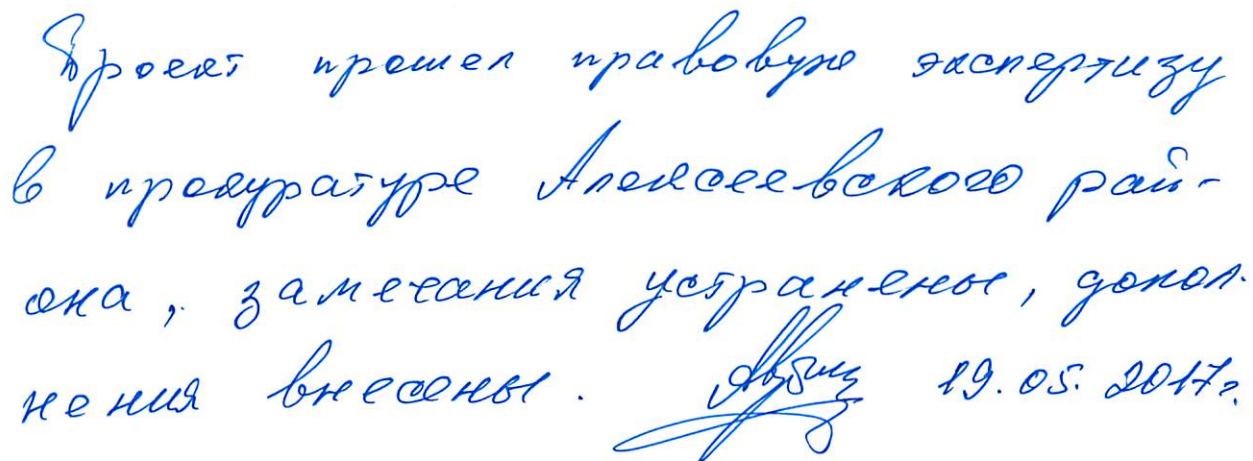 Проект прошел правовую экспертизу
в прокуратуре Алексеевского рай-
она, замечания устранены, допол-
нения внесены. 19.05.2017г.